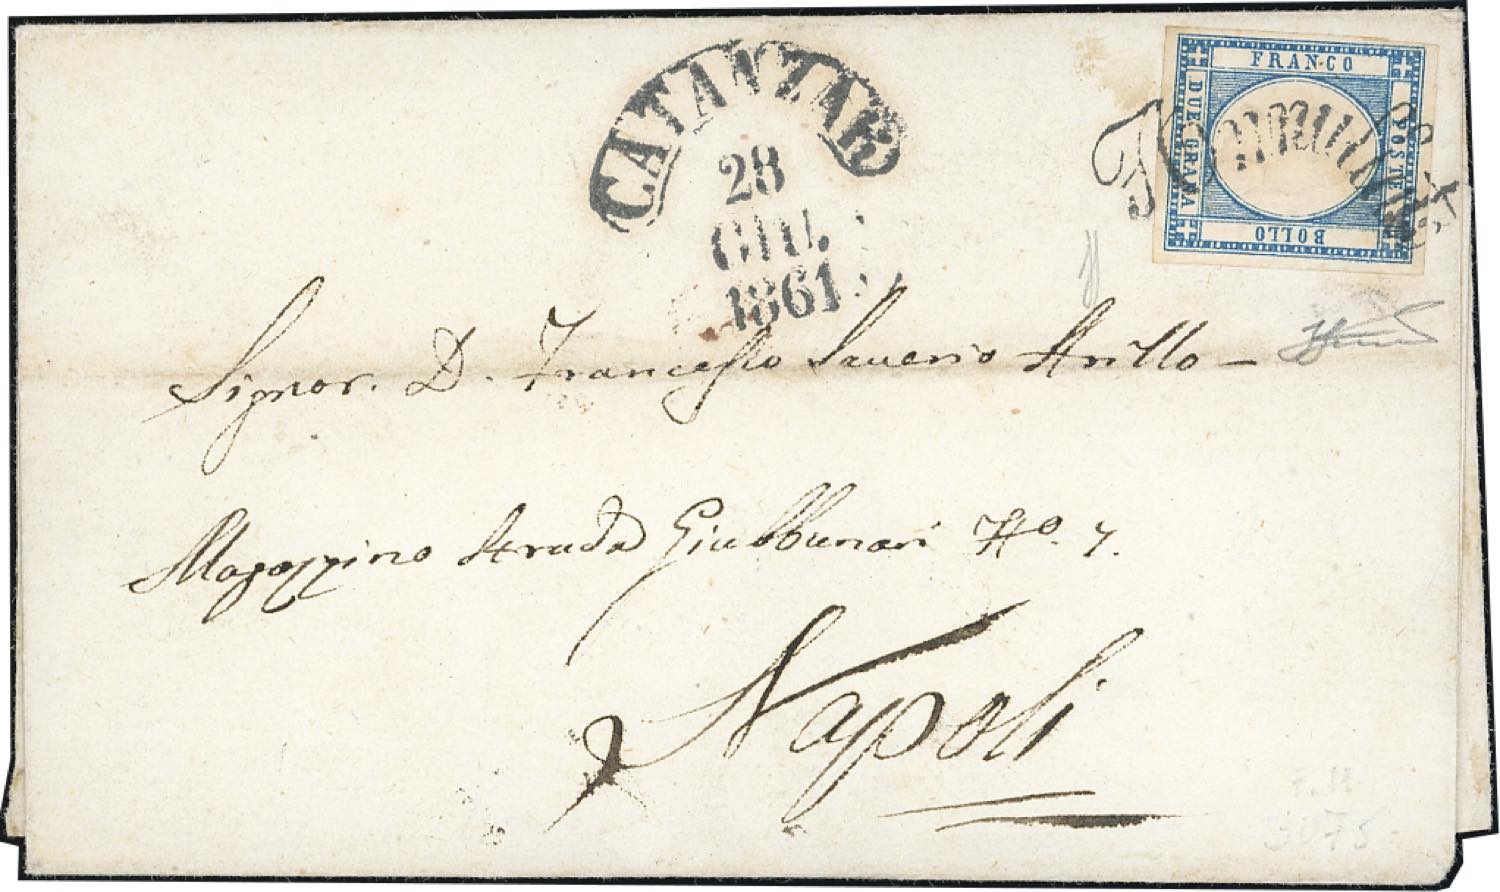 CATANZARO
28
GIU.
1861
FRANCO
DUE GRANA
POSTE
BOLLO
Annullato
Signor. D. Francesco Saverio Arillo
Magazzino Strada Giubbonari No. 7.
Napoli